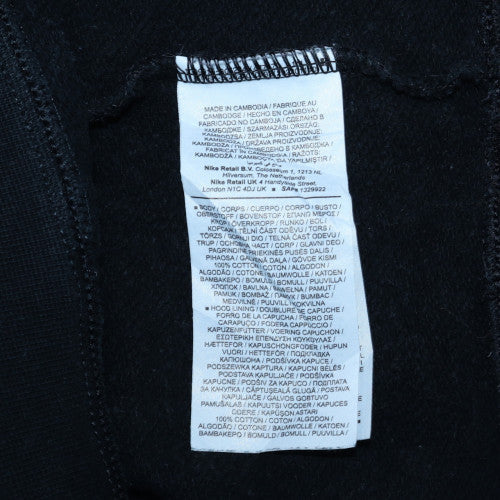 MADE IN CAMBODIA / FABRIQUE AU
CAMBODGE / HECHO EN CAMBOYA /
FABRICADO NO CAMBOJA / СДЕЛАНО В
КАМБОДЖЕ / SZÁRMAZÁSI ORSZÁG:
KAMBODZSA / ZEMLJA PROIZVODNJE:
Nike Retail B.V. Colosseum 1, 1213 NL
Hilversum, The Netherlands
Nike Retail UK 4 Handyside Street,
London N1C 4DJ UK
BODY / CORPS / CUERPO / CORPO / BUSTO /
OBERSTOFF / BOVENSTOF / ΕΠΑΝΩ ΜΕΡΟΣ /
KROP / OVERKROPP / RUNKO / BOL /
KORPSAK / TĚLNÍ ČÁST ODĚVU / TORS /
TÖRZS / GORNJI DIO / TELNÁ ČASŤ ODEVU /
TRUP / ОСНОВНАЯ ЧАСТ / CORP / GLAVNI DEO /
PAGRINDINĖ PRIEKINĖS PUSĖS DALIS /
PIHAOSA / GALVENĀ DAĻA / GÖVDE KISMI
100% COTTON / COTON / ALGODON /
ALGODÃO / COTONE / BAUMWOLLE / KATOEN /
ΒΑΜΒΑΚΕΡΟ / BOMULD / BOMULL / PUUVILLA /
ХЛОПОК / BAVLNA / BAWEŁNA / PAMUT /
PAMUK / BOMBAŽ / ПАМУК / BUMBAC /
MEDVILNĖ / PUUVILL / KOKVILNA
HOOD LINING / DOUBLURE DE CAPUCHE /
FORRO DE LA CAPUCHA / FORRO DO
CARAPUÇO / FODERA CAPPUCCIO /
KAPUZENFUTTER / VOERING CAPUCHON /
ΕΣΩΤΕΡΙΚΗ ΕΠΕΝΔΥΣΗ ΚΟΥΚΟΥΛΑΣ /
HÆTTEFOR / KAPUSCHONGFODER / HUPUN
VUORI / HETTEFÔR / ПОДКЛАДКА
КАПЮШОНА / PODŠÍVKA KAPUCE /
PODSZEWKA KAPTURA / KAPUCNI BÉLÉS /
PODSTAVA KAPULJAČE / PODŠÍVKA
KAPUCNE / PODŠIV ZA KAPUCO / ПОДПЛАТА
ЗА КАЧУЛКА / CĂPTUŞEALĂ GLUGĂ / POSTAVA
KAPULJAČE / GALVOS GOBTUVO
PAMUŠALAS / KAPUUTSI VOODER / KAPUCES
ODERE / KAPÜŞON ASTARI
100% COTTON / COTON / ALGODON /
ALGODÃO / COTONE / BAUMWOLLE / KATOEN /
ΒΑΜΒΑΚΕΡΟ / BOMULD / BOMULL / PUUVILLA /